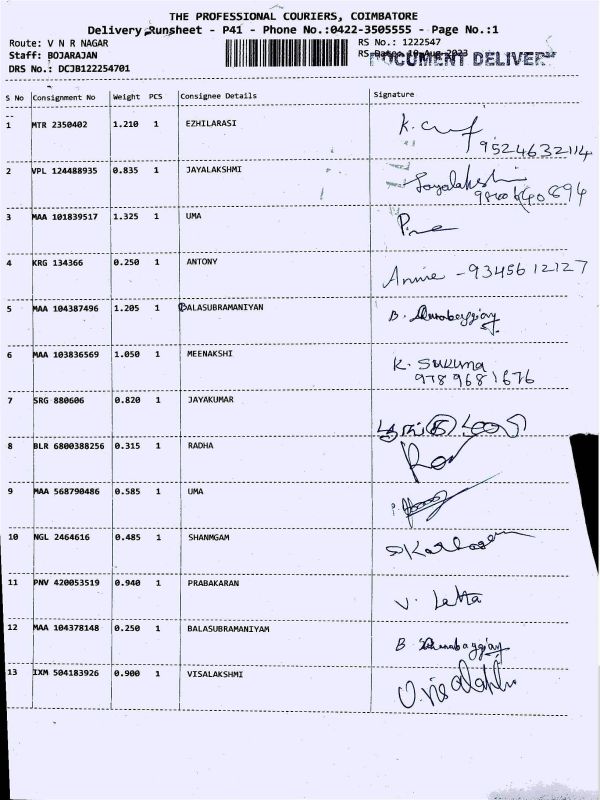 THE PROFESSIONAL COURIERS, COIMBATORE
Delivery Runsheet - P41 - Phone No.:0422-3505555 - Page No.:1
Route: V N R NAGAR
RS No.: 1222547
Staff: BOJARAJAN
RS Date: 10-Aug-2023
DOCUMENT DELIVERY
DRS No.: DCJB122254701
S No Consignment No Weight PCS Consignee Details Signature
1 MTR 2350402 1.210 1 EZHILARASI
9524632114
2 VPL 124488935 0.835 1 JAYALAKSHMI Jayalakshmi
3 MAA 101839517 1.325 1 UMA
4 KRG 134366 0.250 1 ANTONY Annie - 9345612127
5 MAA 104387496 1.205 1 BALASUBRAMANIYAN B.
6 MAA 103836569 1.050 1 MEENAKSHI K. SUKUMA
9789681676
7 SRG 880606 0.820 1 JAYAKUMAR
8 BLR 6800388256 0.315 1 RADHA
9 MAA 568790486 0.585 1 UMA
10 NGL 2464616 0.485 1 SHANMGAM
11 PNV 420053519 0.940 1 PRABAKARAN V. Latta
12 MAA 104378148 0.250 1 BALASUBRAMANIYAM B
13 IXM 504183926 0.900 1 VISALAKSHMI